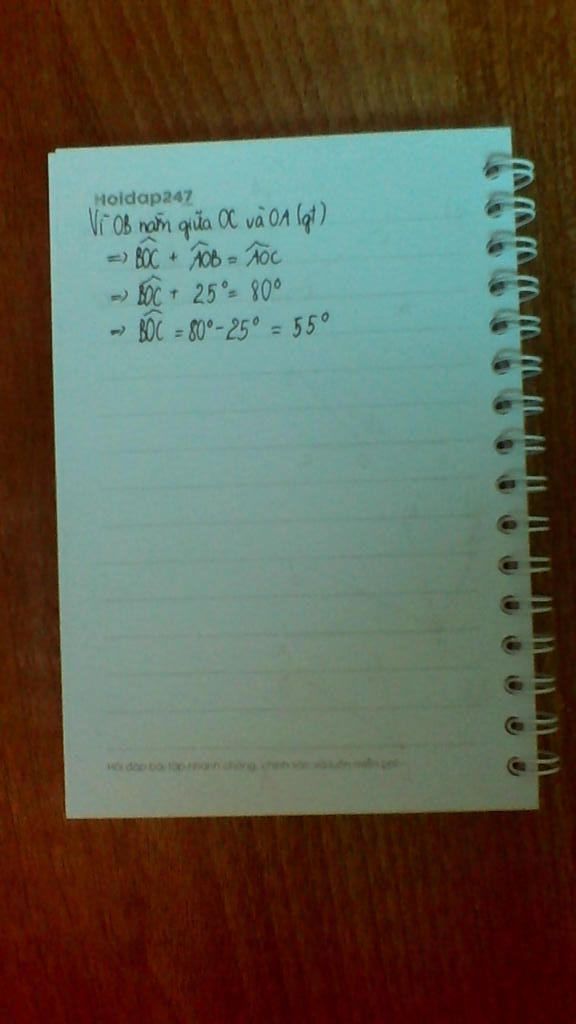 Hoidap247
Vì OB nằm giữa OC và OA (gt)
=> BÔC + AÔB = AÔC
=> BÔC + 25° = 80°
=> BÔC = 80° - 25° = 55°
Hỏi đáp bài tập nhanh chóng, chính xác và luôn miễn phí